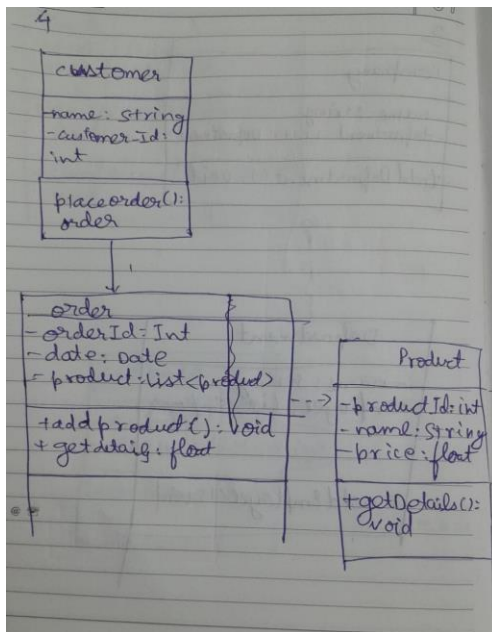 4
customer
-name: string
-customer-Id:
int
placeorder():
order
order
- orderId: Int
- date: Date
- product: List<product>
+addproduct(): void
+ getdetaig: float
Product
-productId: int
-name: string
-price: float
+getDetails():
void